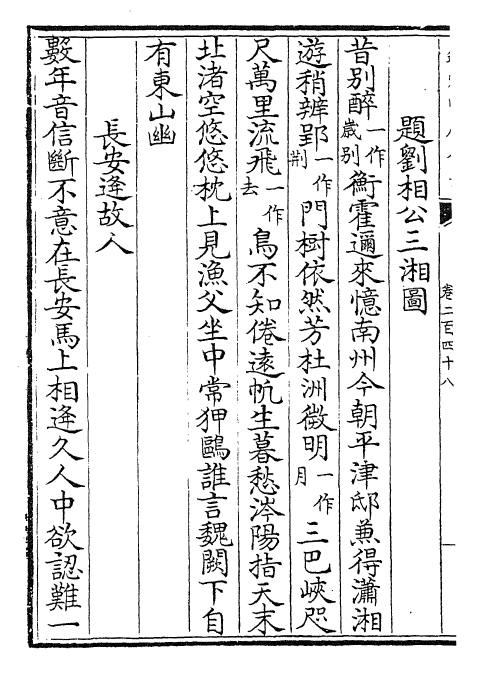 卷二百四十八
題劉相公三湘圖
昔別醉一作歲别衡霍邇來憶南州今朝平津邸兼得瀟湘
遊稍辨郢一作荆門樹依然芳杜洲微明一作月三巴峽咫
尺萬里流飛一作去鳥不知倦遠帆生暮愁涔陽指天末
北渚空悠悠枕上見漁父坐中常狎鷗誰言魏闕下自
有東山幽
長安逢故人
數年音信斷不意在長安馬上相逢久人中欲認難一